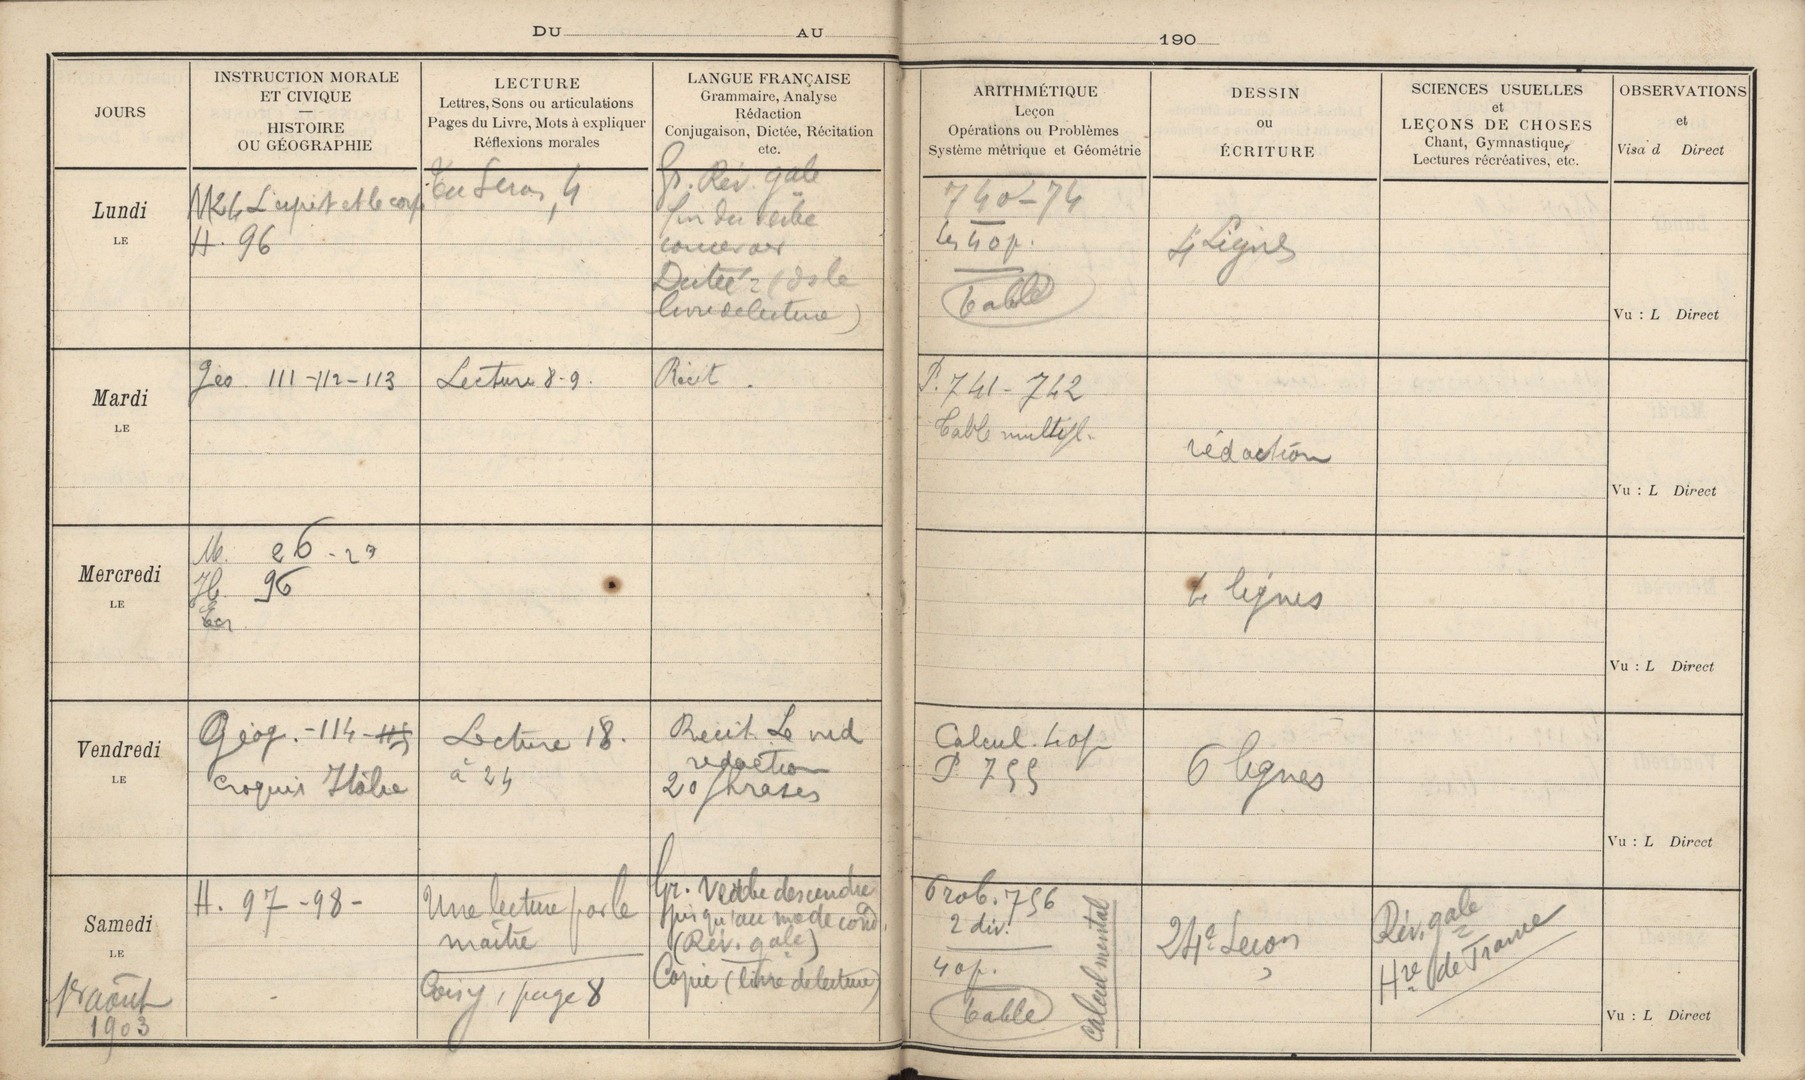 DU AU 190
JOURS
INSTRUCTION MORALE
ET CIVIQUE
—
HISTOIRE
OU GÉOGRAPHIE
LECTURE
Lettres, Sons ou articulations
Pages du Livre, Mots à expliquer
Réflexions morales
LANGUE FRANÇAISE
Grammaire, Analyse
Rédaction
Conjugaison, Dictée, Récitation
etc.
ARITHMÉTIQUE
Leçon
Opérations ou Problèmes
Système métrique et Géométrie
DESSIN
ou
ÉCRITURE
SCIENCES USUELLES
et
LEÇONS DE CHOSES
Chant, Gymnastique,
Lectures récréatives, etc.
OBSERVATIONS
et
Visa d Direct
Lundi
LE
M24 L'esprit et le corps
H. 96
4
Gr. Rév. gale
fin du verbe
concevoir
Dictée = (ds le
livre de lecture)
740-74
les 4 op.
Table
4 Lignes
Vu : L Direct
Mardi
LE
Géo 111-112-113
Lecture 8-9.
Récit.
P. 741-742
Table multipl.
rédaction
Vu : L Direct
Mercredi
LE
M. 26-27
H. 96
4 lignes
Vu : L Direct
Vendredi
LE
Géog. -114-115
croquis Italie
Lecture 18.
à 24
Récit. Le nid
redaction
20 phrases
Calcul. 4 op
P 755
6 lignes
Vu : L Direct
Samedi
LE
1er août
1903
H. 97-98-
Une lecture par le
maître
page 8
Gr. Verbe descendre
jusqu'au mode cond.
(Rév. gale)
Copie (livre de lecture)
Prob. 756
2 div.
4 op.
Table
calcul mental
24e Leçon
Rév. gale
Hre de France
Vu : L Direct